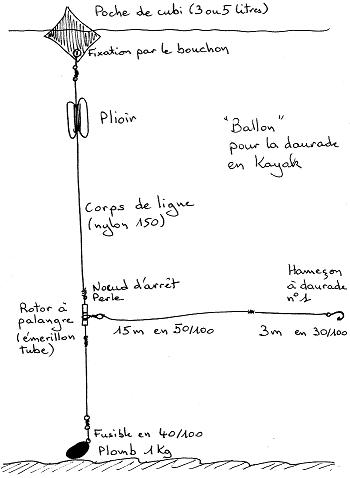 Poche de cubi (3 ou 5 litres)
Fixation par le bouchon
Plioir
"Ballon"
pour la daurade
en Kayak
Corps de ligne
(nylon 150)
Noeud d'arrêt
Perle
Hameçon
à daurade
n°1
Rotor à
palangre
(émerillon
tube)
15m en 50/100
3m en 30/100
Fusible en 40/100
Plomb 1Kg